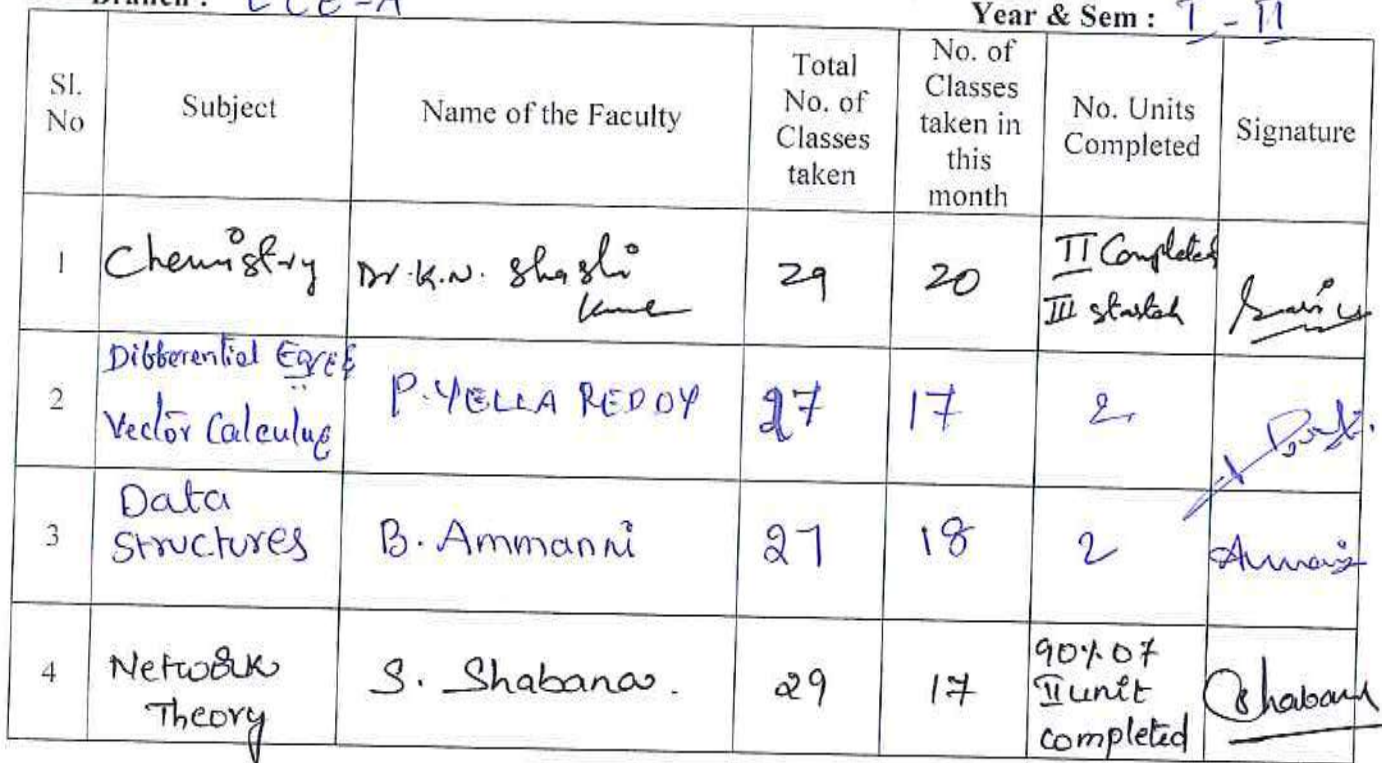 Branch : ECE-A
Year & Sem : I - II
Sl. No
Subject
Name of the Faculty
Total No. of Classes taken
No. of Classes taken in this month
No. Units Completed
Signature
1
Chemistry
Dr. K.N. Shashi
29
20
II Completed
III started
2
Differential Eqs &
Vector Calculus
P. YELLA REDDY
27
17
2
3
Data
Structures
B. Ammanni
27
18
2
4
Network
Theory
S. Shabana.
29
17
90% of
II unit
completed
Shabana